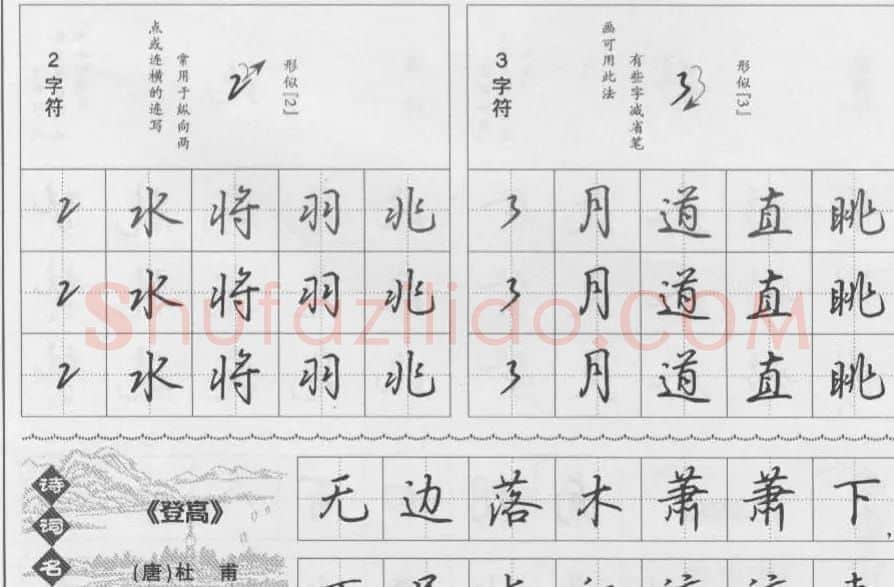 2字符
形似『2』
常用于纵向两
点或连横的连写
3字符
形似『3』
有些字减省笔
画可用此法
2 水 将 羽 兆
3 月 道 直 眺
2 水 将 羽 兆
3 月 道 直 眺
2 水 将 羽 兆
3 月 道 直 眺
shufaziliao.COM
诗词名
《登高》
(唐)杜 甫
无边落木萧萧下,